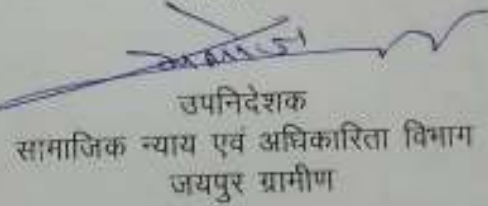 उपनिदेशक
सामाजिक न्याय एवं अधिकारिता विभाग
जयपुर ग्रामीण